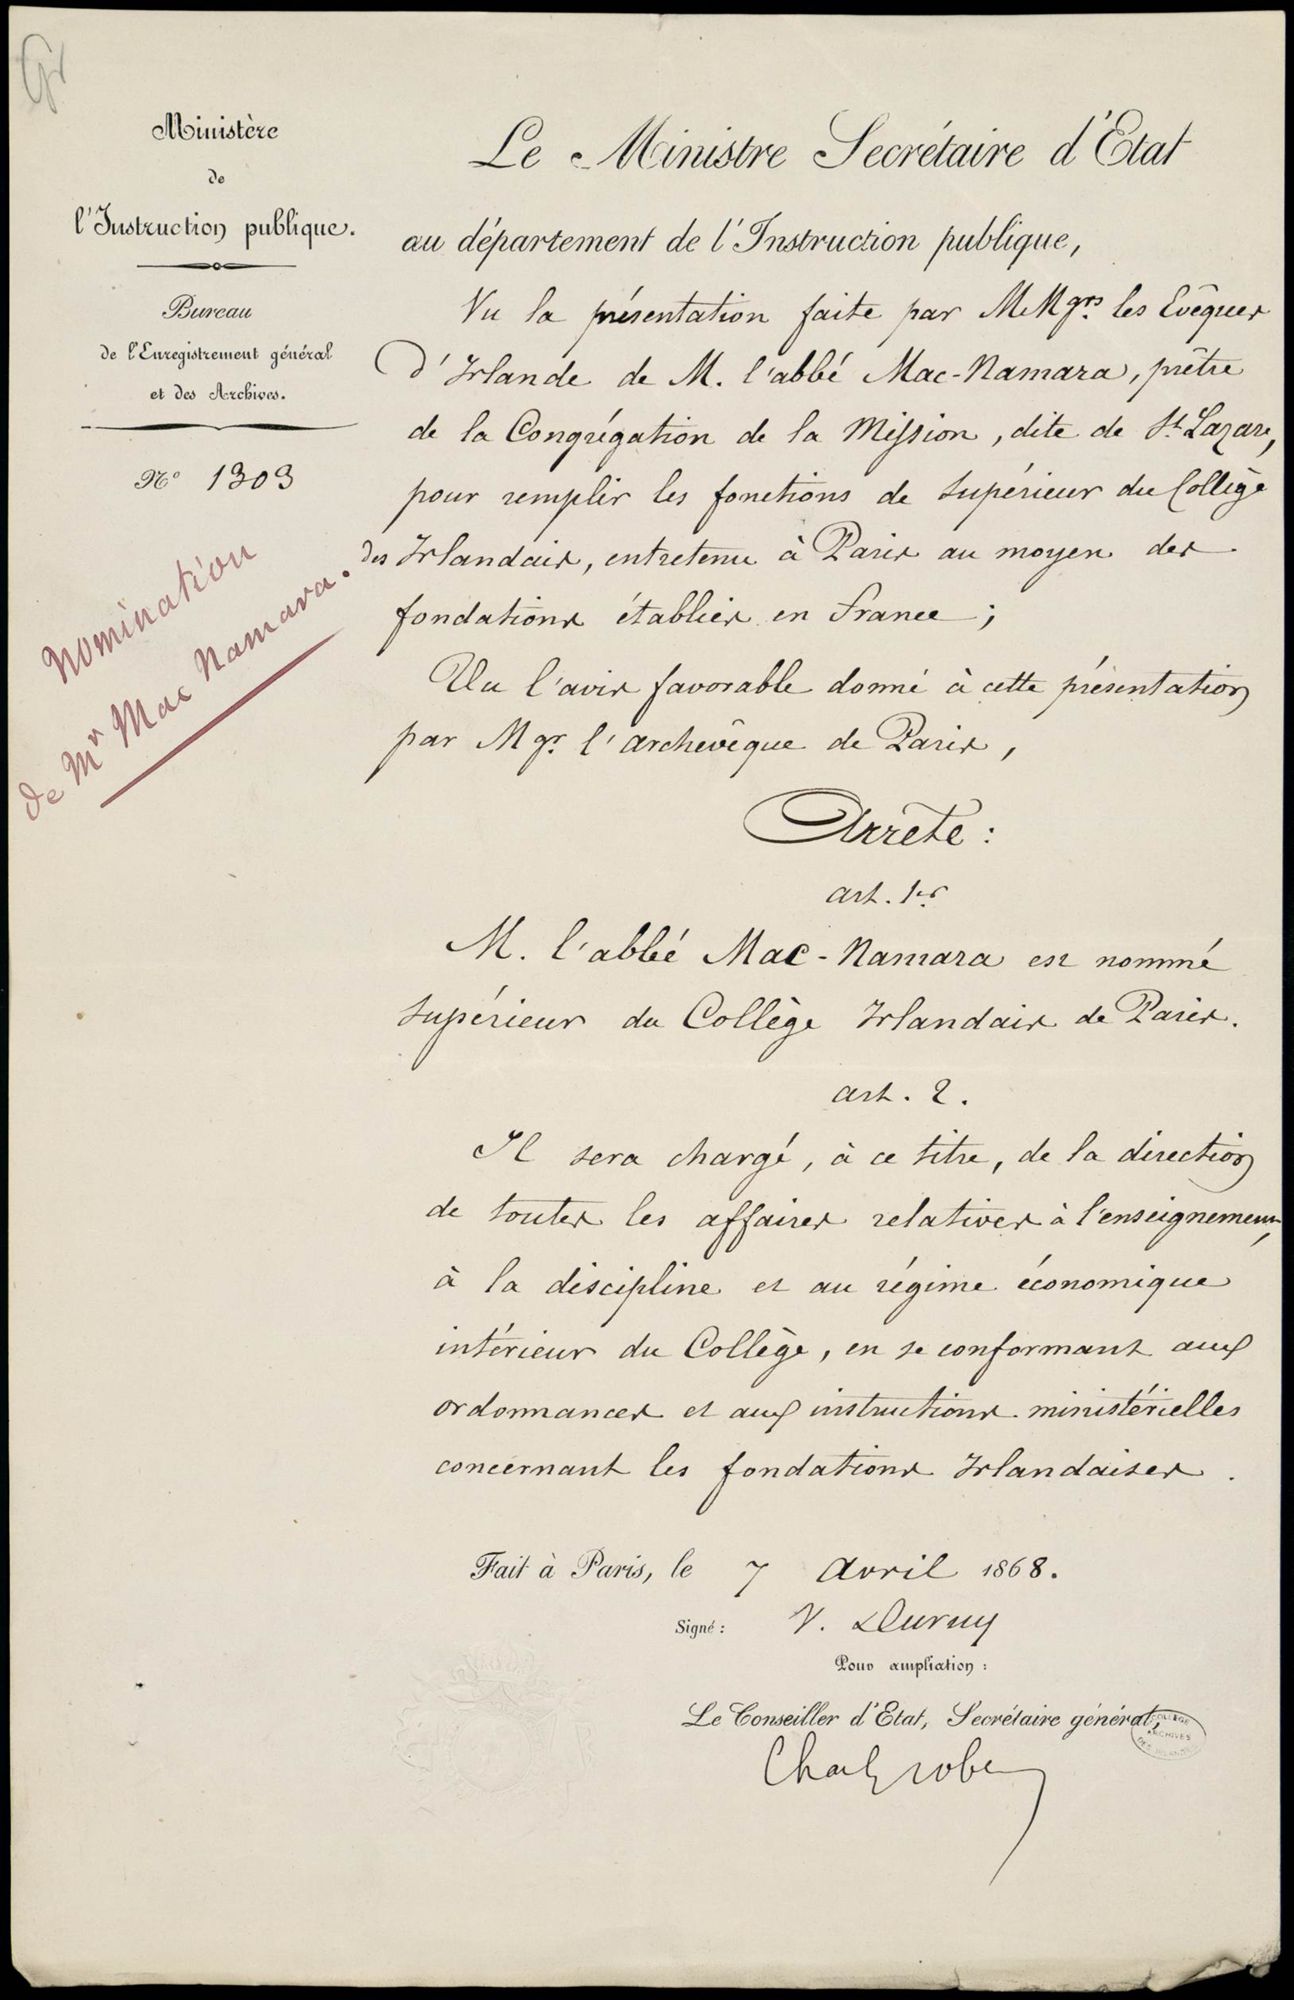 Ministère
de
l'Instruction publique.
Bureau
de l'Enregistrement général
et des Archives.
N° 1303
Nomination
de Mr Mac Namara.
Le Ministre Secrétaire d'Etat
au département de l'Instruction publique,
Vu la présentation faite par MMgrs. les Evêques
d'Irlande de M. l'abbé Mac-Namara, prêtre
de la Congrégation de la Mission, dite de St. Lazare,
pour remplir les fonctions de Supérieur du Collège
des Irlandais, entretenu à Paris au moyen des
fondations établies en France ;
Vu l'avis favorable donné à cette présentation
par Mgr. l'archevêque de Paris,
Arrête :
art. 1er
M. l'abbé Mac-Namara est nommé
Supérieur du Collège Irlandais de Paris.
art. 2.
Il sera chargé, à ce titre, de la direction
de toutes les affaires relatives à l'enseignement,
à la discipline et au régime économique
intérieur du Collège, en se conformant aux
ordonnances et aux instructions ministérielles
concernant les fondations Irlandaises.
Fait à Paris, le 7 Avril 1868.
Signé : V. Duruy
Pour ampliation :
Le Conseiller d'Etat, Secrétaire général,
COLLÈGE
ARCHIVES
DES IRLANDAIS